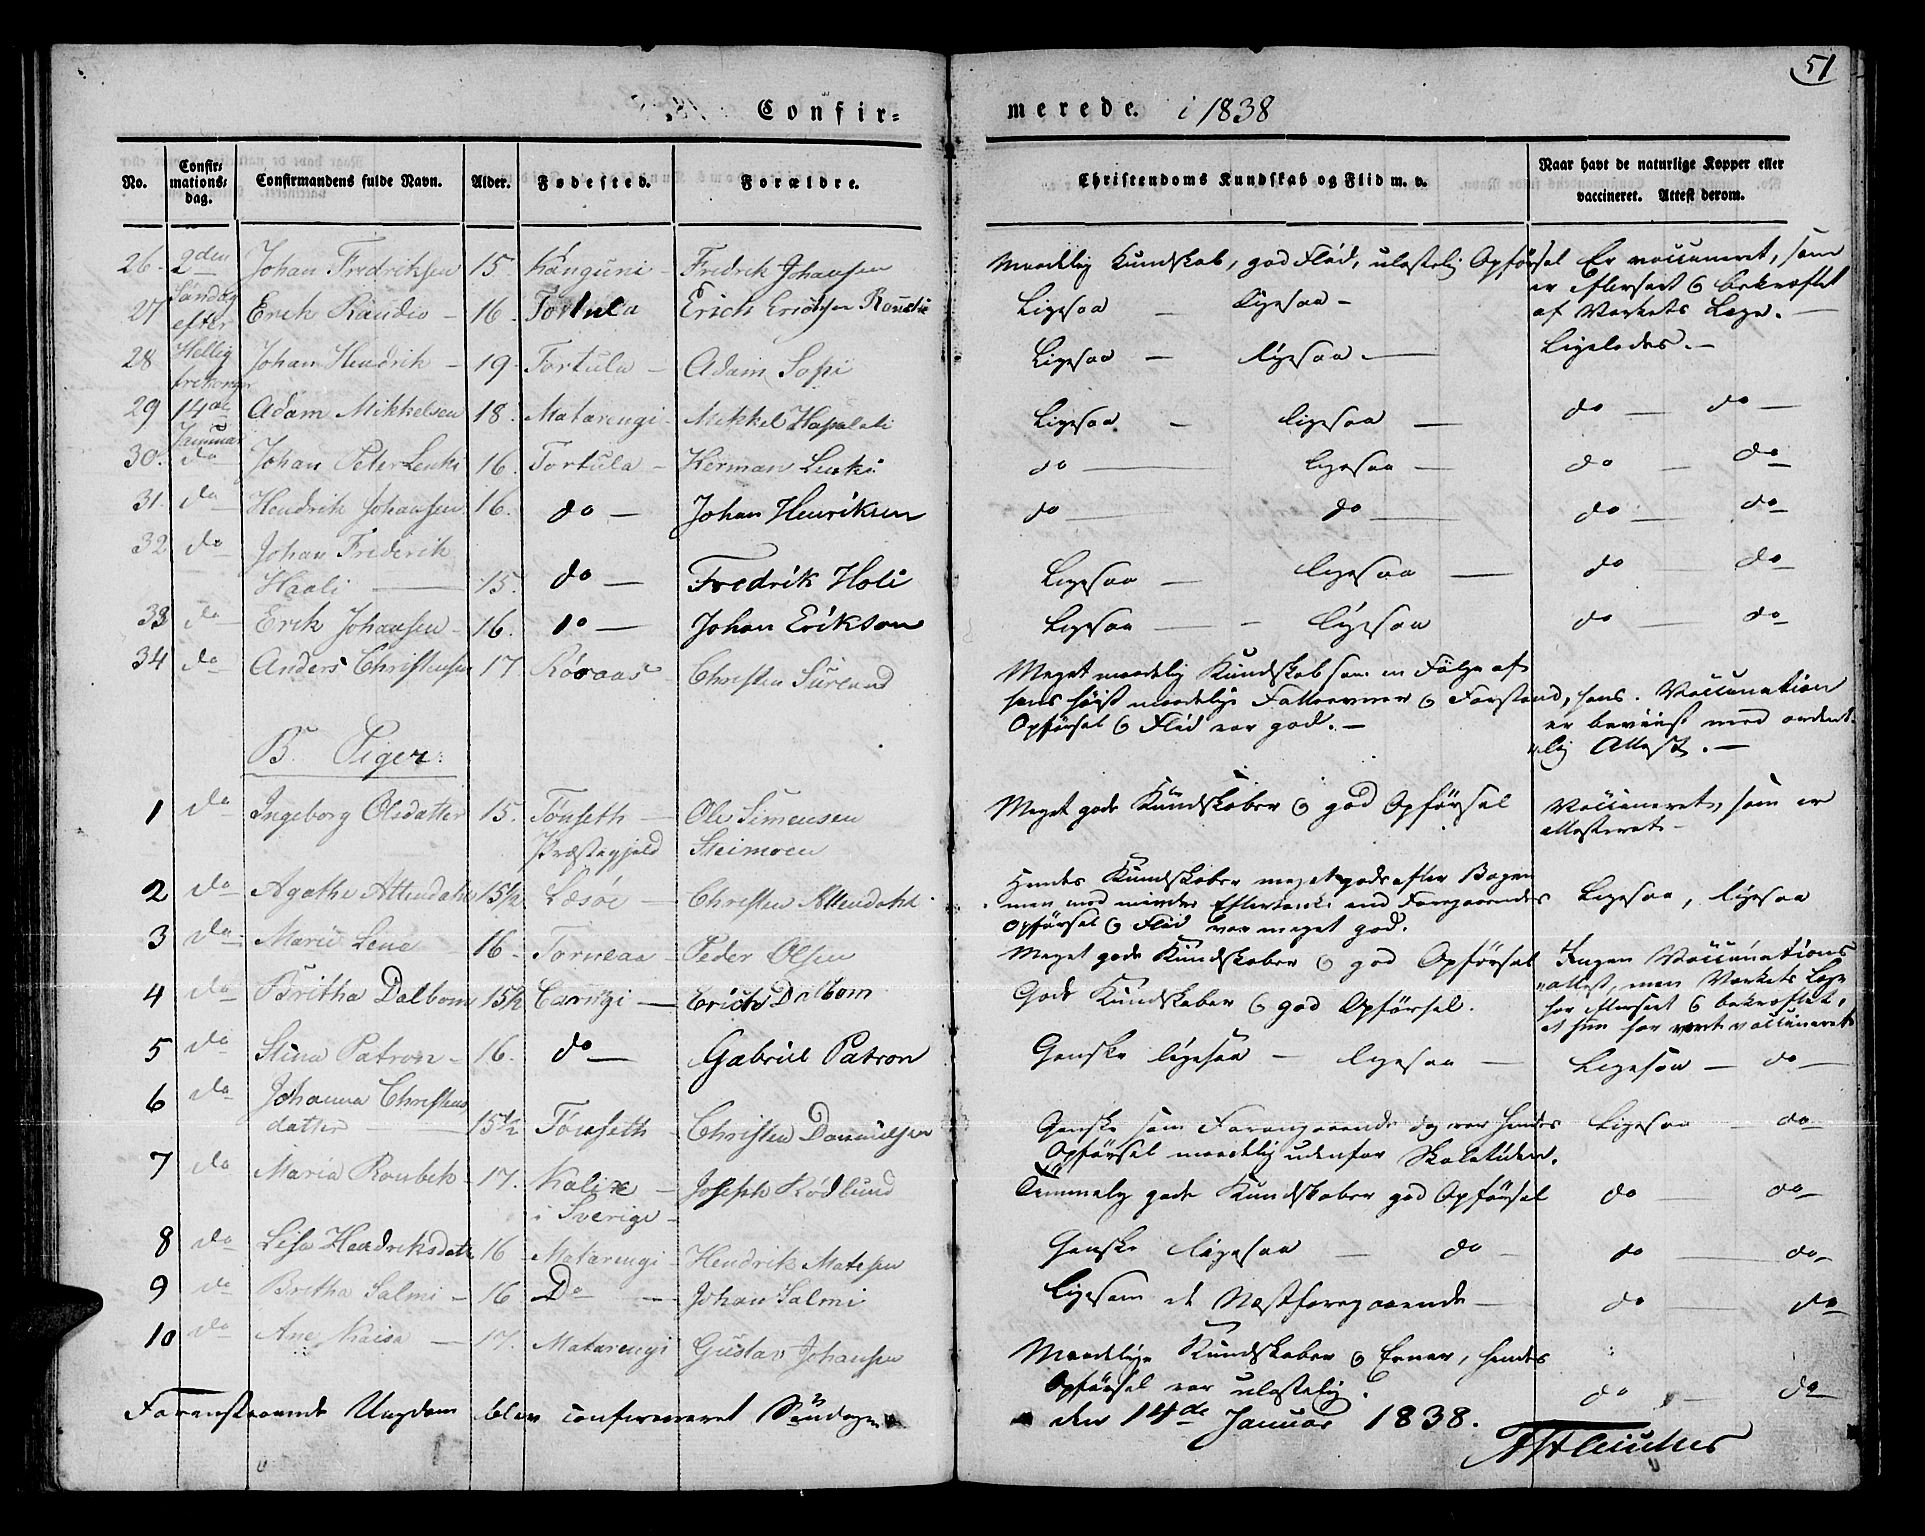 51
Confir- merede. i 1838
No. Confir-mations-dag. Confirmandens fulde Navn. Alder. Fødested. Forældre. Christendoms Kundskab og Flid m. v. Naar havt de naturlige Kopper eller vaccineret. Attest derom.
26. 2den Johan Fredriksen 15. Fredrik Johansen Maadelig Kundskab, god Flid, ulastelig Opførsel Er vaccineret, som
Søndag er efterseet &amp; bekræftet
27 efter Erik Raudio 16. Tortula Erich Ligesaa ligesaa af Verkets Læge.
28 Hellig Johan Hendrik 19 Tortula Adam Sopi Ligesaa ligesaa Ligeledes.
trekonger
29 14de Adam Mikkelsen 18. Matarengi Mikkel Ligesaa ligesaa do do
Januar
30. do Johan Peter Lenki 16. Tortula Herman Lenki do ligesaa do do
31. do Hendrik Johansen 16. do Johan Henriksen do do do do
32 do Johan Frederik
Haali 15. do Fredrik Holi Ligesaa ligesaa do do
33 do Erik Johansen 16. do Johan Erikson Ligesaa ligesaa do do
34 do Anders Christensen 17 Røraas Christen Meget maadelig Kundskab som en Følge af
hans høist maadelige Fatteevner &amp; Forstand, hans Vaccination
Opførsel &amp; Flid var god. er beviist med ordent-
B. Piger: lig Attest.
1 do Ingeborg Olsdatter 15. Tønseth Ole Simensen Meget gode Kundskaber &amp; god Opførsel Vaccineret, som er
Præstegjeld Steimoen attesteret
2 do Agathe Attendahl 15½ Læsøe Christen Attendahl Hendes Kundskaber meget gode efter Bogen
men med mindre Eftertanke end Foregaaendes Ligesaa, ligesaa
Opførsel &amp; Flid var meget god.
3 do Marie Lena 16 Torneaa Peder Olsen Meget gode Kundskaber &amp; god Opførsel Ingen Vaccinations
4 do Britha Dalbom 15½ Erich Dalbom Gode Kundskaber &amp; god Opførsel. attest, men Verkets Læge
har efterseet &amp; bekræftet,
at hun har vært vaccineret
5 do Stina Patron 16. do Gabriel Patron Ganske ligesaa ligesaa Ligesaa do
6 do Johanna Christens
datter 15½ Tønseth Christen Danielsen Ganske som Foregaaende dog var hendes Ligesaa do
Opførsel maadelig udenfor Skoletiden.
7 do Maria Roubek 17. Kalix Joseph Rødlund Temmelig gode Kundskaber god Opførsel do do
i Sverige
8 do Lisa Hendriksdatr 16 Matarengi Hendrik Matesen Ganske ligesaa do do do
9 do Britha Salmi 16 Do Johan Salmi Ligesom et Næstforegaaende do do
10 do Ane Kaisa 17. Matarengi Gustav Johansen Maadelige Kundskaber &amp; Evner, hendes
Opførsel var ulastelig. do do
Foranstaaende Ungdom blev confirmeret Søndagen den 14de Januar 1838.